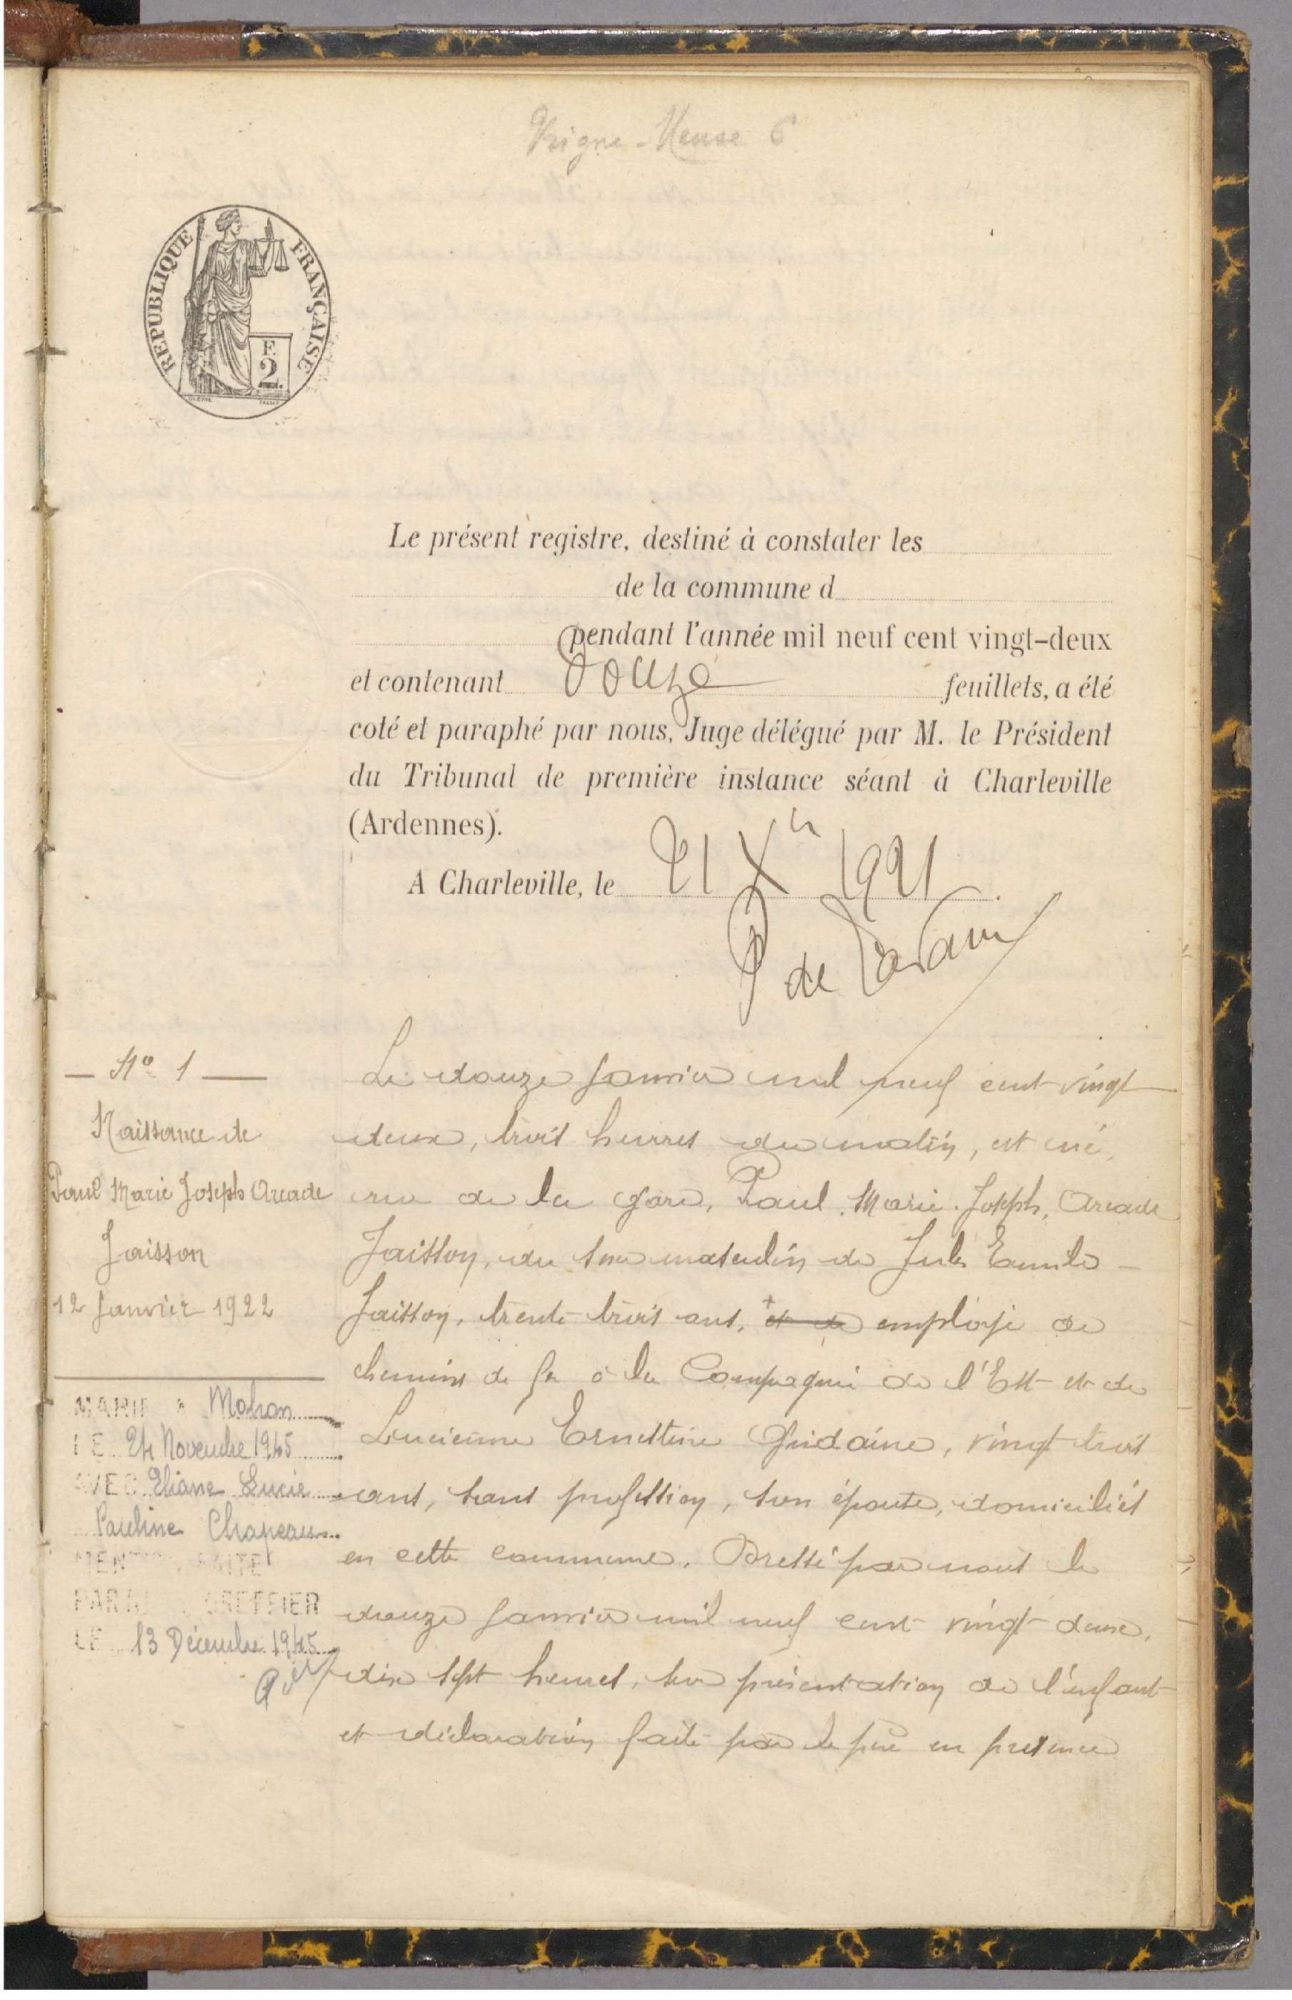 Vrigne-Meuse 6
REPUBLIQUE FRANÇAISE
F.
2.
Le présent registre, destiné à constater les
de la commune d
pendant l'année mil neuf cent vingt-deux
et contenant Douze feuillets, a été
coté et paraphé par nous, Juge délégué par M. le Président
du Tribunal de première instance séant à Charleville
(Ardennes).
A Charleville, le 21 Xbre 1921
P de
— No 1 —
Naissance de
Paul Marie Joseph Arcade
Jaisson
12 Janvier 1922
MARIÉ à Mohon
LE 24 Novembre 1945
AVEC Eliane Lucie
Pauline Chapeau
MENTION FAITE
PAR GREFFIER
LE 13 Décembre 1945
Le douze Janvier mil neuf cent vingt
deux, trois heures du matin, est né,
rue de la gare, Paul, Marie, Joseph, Arcade
Jaisson, du sexe masculin de Jules Emile
Jaisson, trente trois ans, + et de employé de
chemins de fer à la Compagnie de l'Est et de
Lucienne Ernestine Guidaine, vingt trois
ans, sans profession, son épouse, domiciliés
en cette commune. Dressé par nous le
douze Janvier mil neuf cent vingt deux,
dix sept heures, sur présentation de l'enfant
et déclaration faite par le père en présence